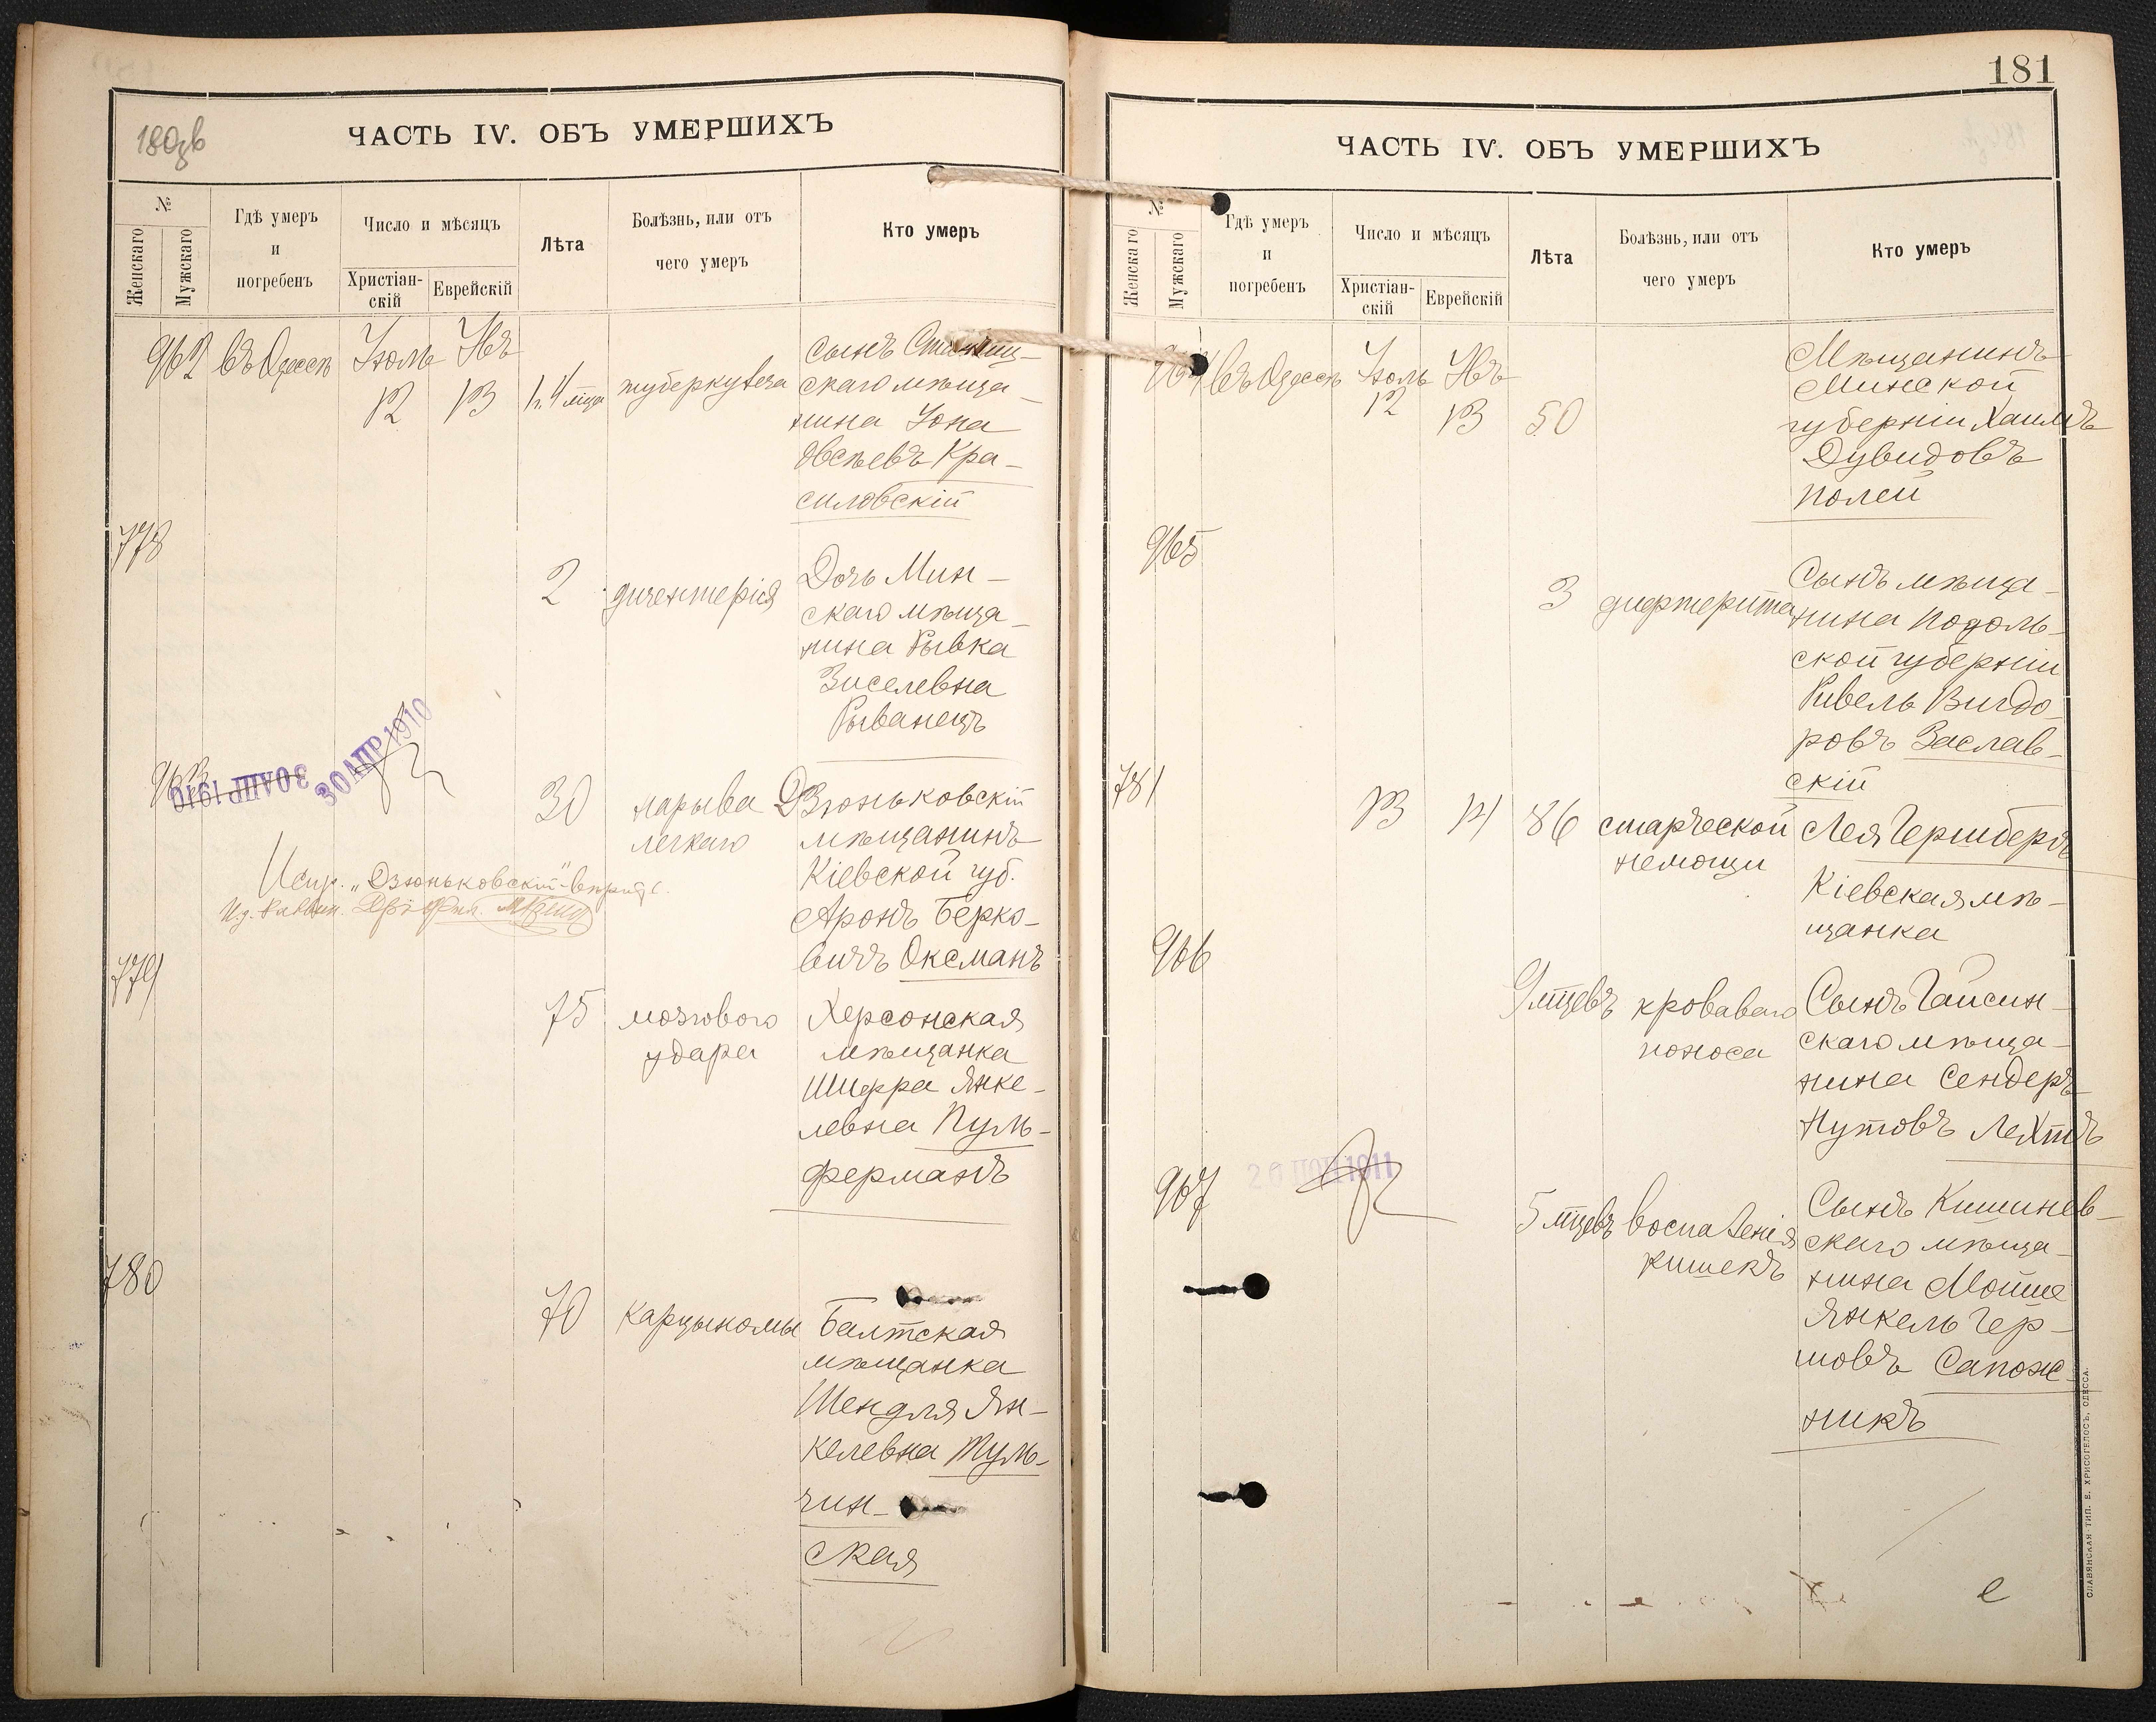 180зв
ЧАСТЬ IV. ОБЪ УМЕРШИХЪ
№
Женскаго
Мужскаго
Гдѣ умеръ
и
погребенъ
Число и мѣсяцъ
Христіан-
скій
Еврейскій
Лѣта
Болѣзнь, или отъ
чего умеръ
Кто умеръ
962 въ Одессѣ Іюль Ивъ
12 13 1 г. 4 мца туберкулеза
сынъ
скаго мѣща-
нина Іона
Овсѣевъ Кра-
силовскій
778
2 дизентерія
Дочь Мин-
скаго мѣща-
нина Рывка
Зиселевна
Рыванецъ
963
30 АПР 1910
30 АПР 1910
30 нарыва
легкаго
Дзюньковскій
мѣщанинъ
Кіевской губ.
Аронъ Берко-
вичъ Оксманъ
Испр. „Дзюньковскій"
779
75 мозгового
удара
Херсонская
мѣщанка
Шифра Янке-
левна Пуль-
ферманъ
780
70 карцыномы
Балтская
мѣщанка
Шендля Ян-
келевна Туль-
чин-
ская
181
ЧАСТЬ IV. ОБЪ УМЕРШИХЪ
№
Женскаго
Мужскаго
Гдѣ умеръ
и
погребенъ
Число и мѣсяцъ
Христіан-
скій
Еврейскій
Лѣта
Болѣзнь, или отъ
чего умеръ
Кто умеръ
964 въ Одессѣ Іюль Ивъ
12 13 50
Мѣщанинъ
Минской
губерніи Хаимъ
Дувидовъ
Полей
965
3 дифтерита
Сынъ мѣща-
нина Подоль-
ской губерніи
Ривель Вигдо-
ровъ Заслав-
скій
781
13 14 86 старческой
немощи
Лея Гершбергъ
Кіевская мѣ-
щанка
966
9 мцевъ кроваваго
поноса
Сынъ Гайсин-
скаго мѣща-
нина Сендеръ
Нутовъ Лехтъ
967
1911
5 мцевъ воспаленія
кишекъ
Сынъ Кишинев-
скаго мѣща-
нина Мойше
Янкель Гер-
шовъ Сапож-
никъ
СЛАВЯНСКАЯ ТИП. Е. ХРИСОГЕЛОСЪ, ОДЕССА.